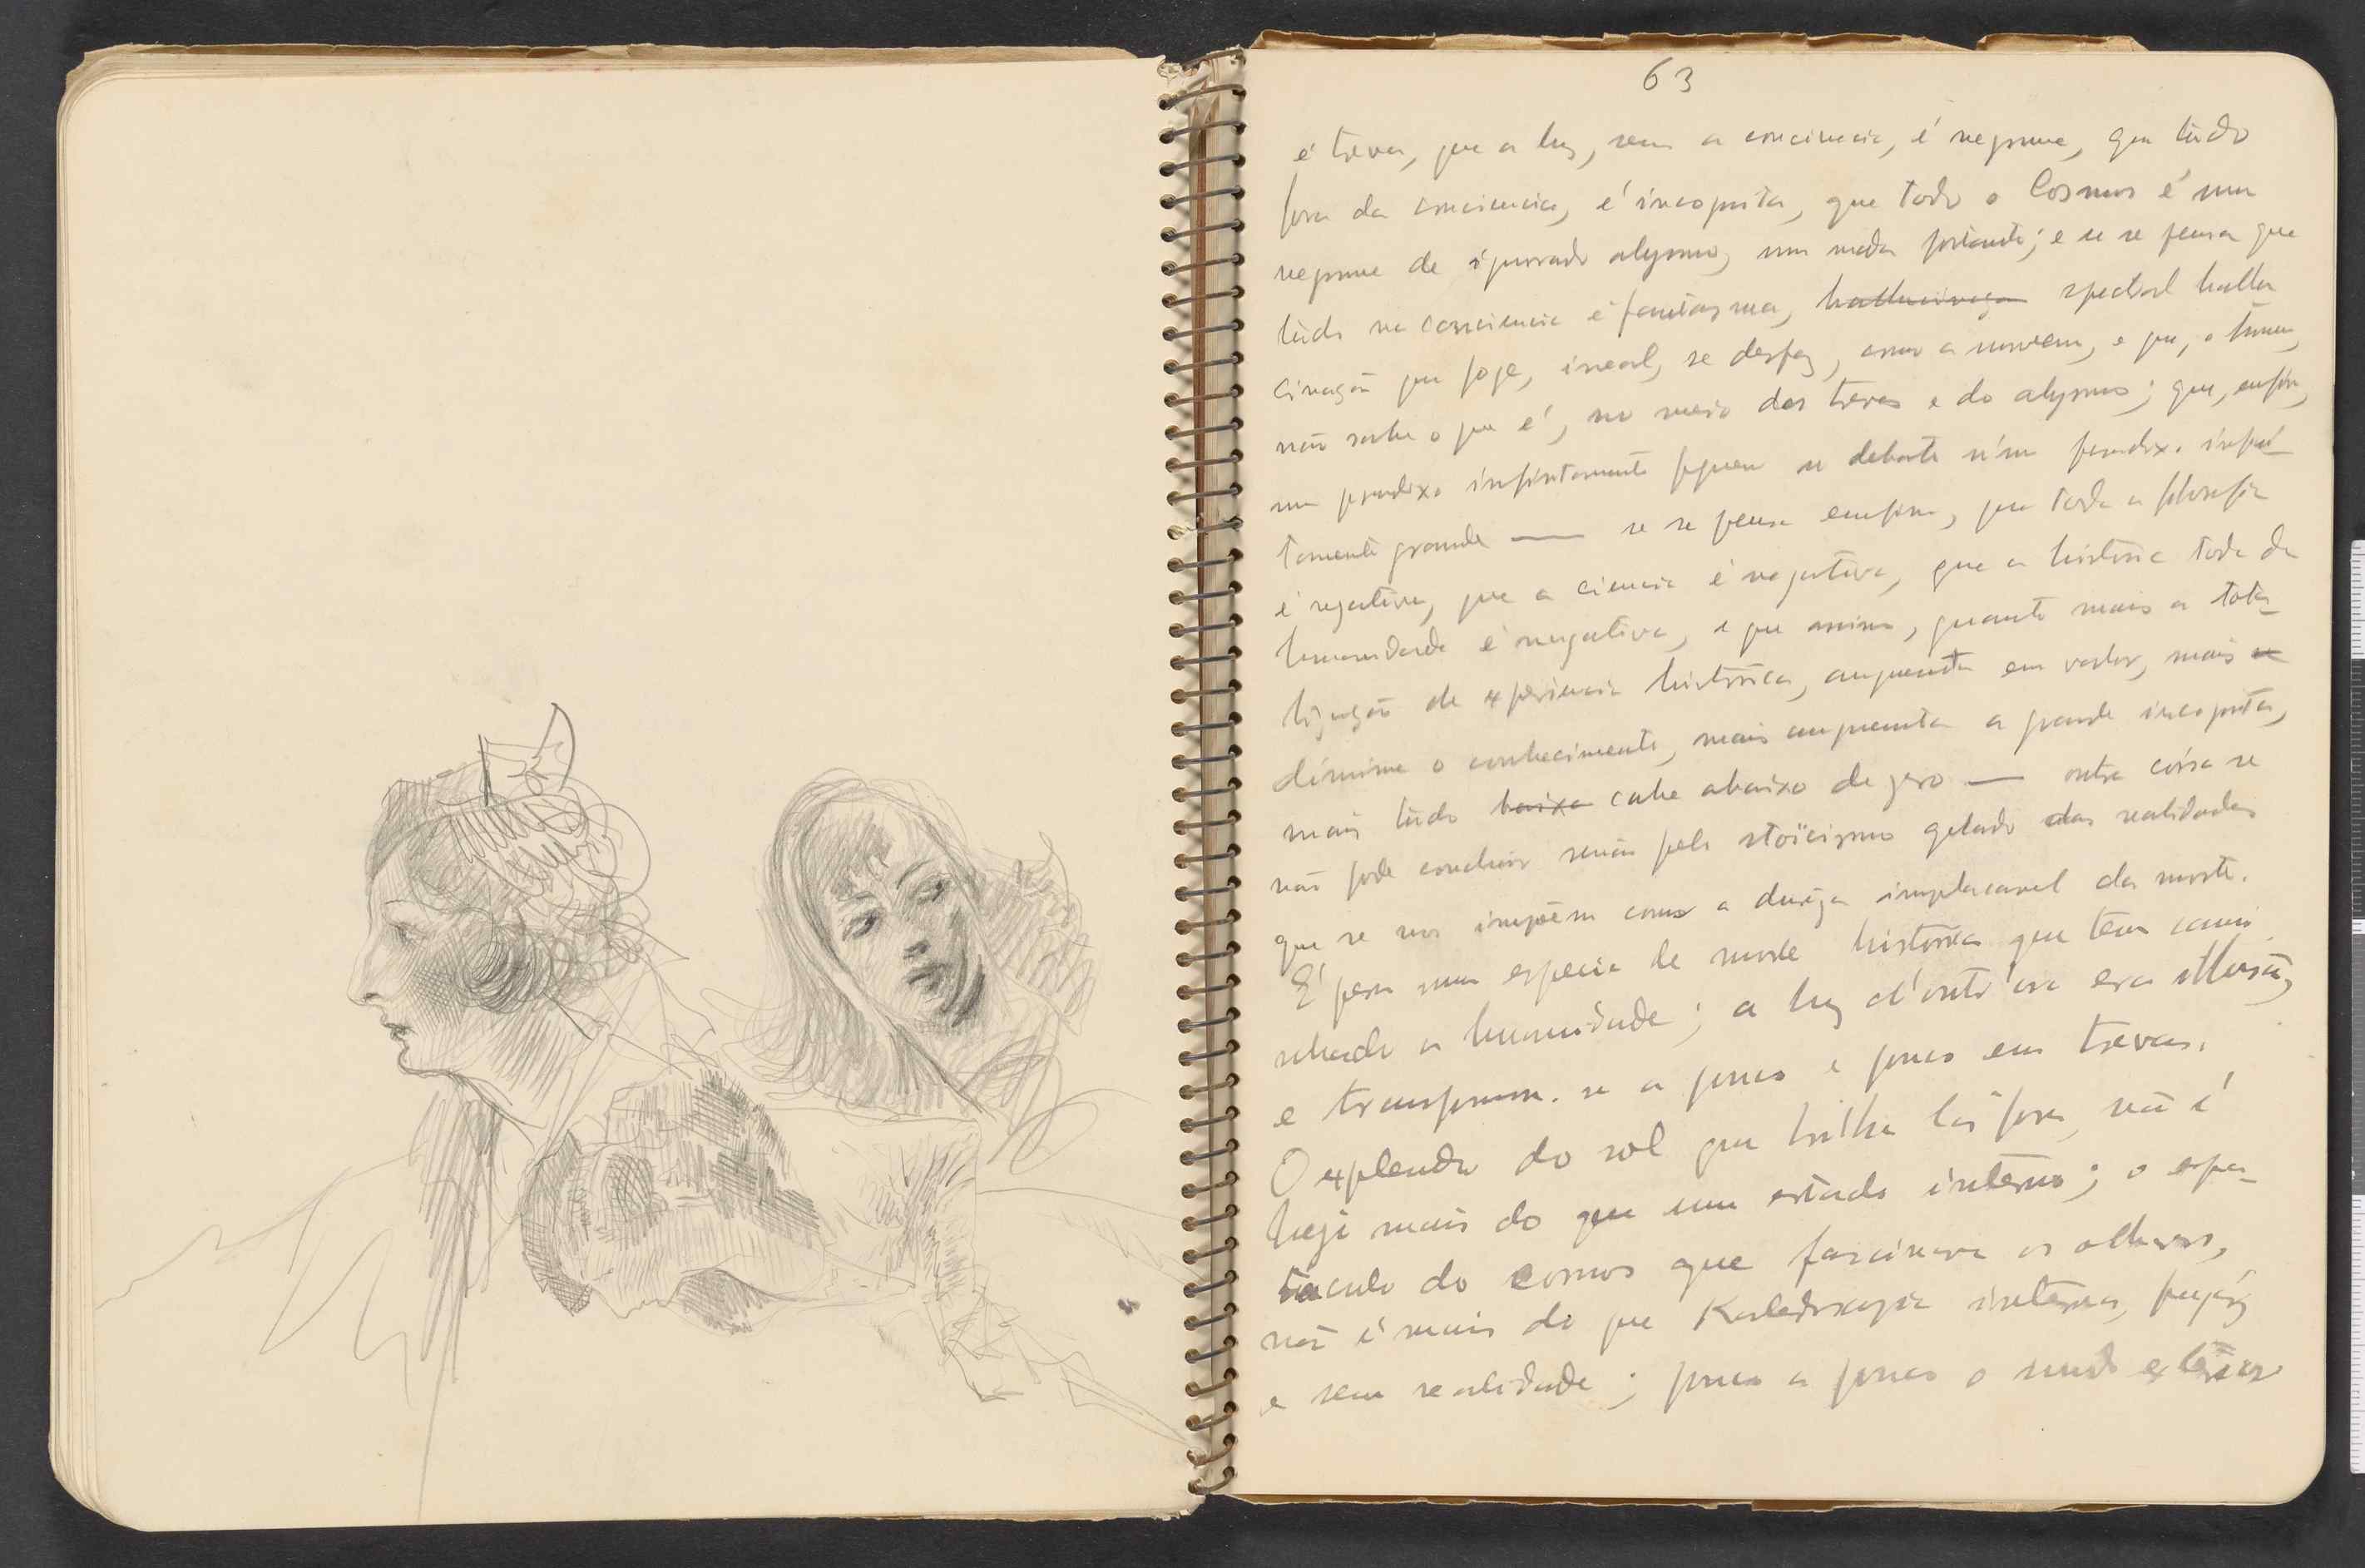 63
é treva, que a luz, sem a conciencia, é negrume, que tudo
fora da conciencia, é incognita, que todo o Cosmos é um
negrume de ignorado abysmo, um nada; e se se pensa que
tudo na consciencia é fantasma, hallucinaçao spectral hallu
cinação que foge, ineal, se desfaz, como a nuvem, e que, o homem,
não sabe o que é, no meio das trevas e do abysmo; que, enfim,
um paradoxo infinitamente pequeno se debate n'um paradoxo infini-
tamente grande — se se pensa emfim, que toda a filosofia
é negativa, que a ciencia é negativa, que a historia toda da
humanidade é negativa, e que assim, quanto mais a tota-
lização de experiencia historica, augmenta em valor, mais
diminue o conhecimento, mais augmenta a grande incognita,
mais tudo baixa cahe abaixo de zero — outra coisa se
não pode concluir senão pelo stoïcismo gelado das realidades
que se nos impõem como a dureza implacavel da morte.
É pois uma especie de morte historica que tem cami
nhado a humanidade; a luz d'outr'ora era illusão,
e transforma-se a pouco e pouco em trevas.
O explendor do sol que brilha lá fora, não é
hoje mais do que um estado interno; o espe-
taculo do cosmos que fascinava os olhares,
não é mais do que Kaleidoscopia interna, fugáz
e sem realidade; pouco a pouco o mundo exterior